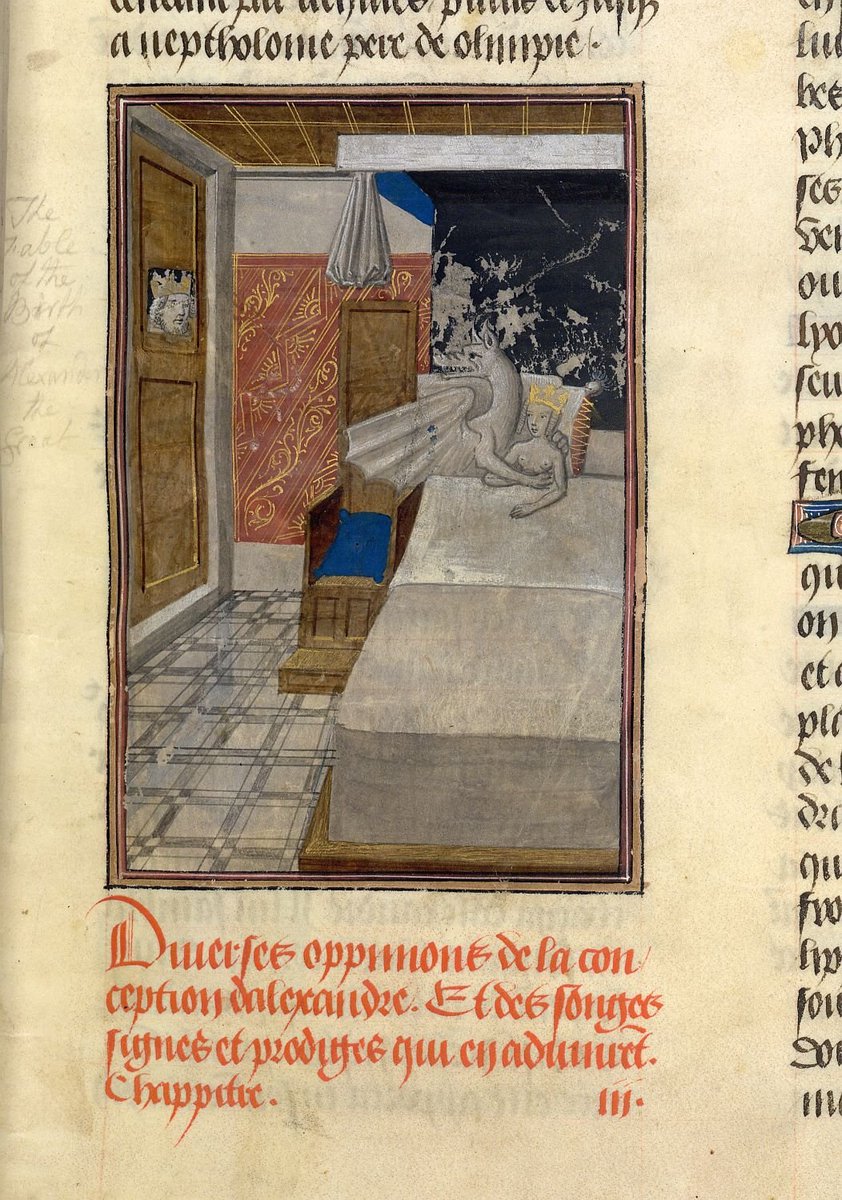 a neptholome pere de olimpie.
The
Fable
of the
Birth
of
Alexander
the
Great
Diverses oppinions de la con
ception dalexandre. Et des songes
signes et prodiges qui en advinret.
Chappitre. iii.
lui
bes
ph
ses
ver
ou
lyo
seu
phe
fen
qu
on
et a
pla
de l
dra
que
fro
lip
soi
dou